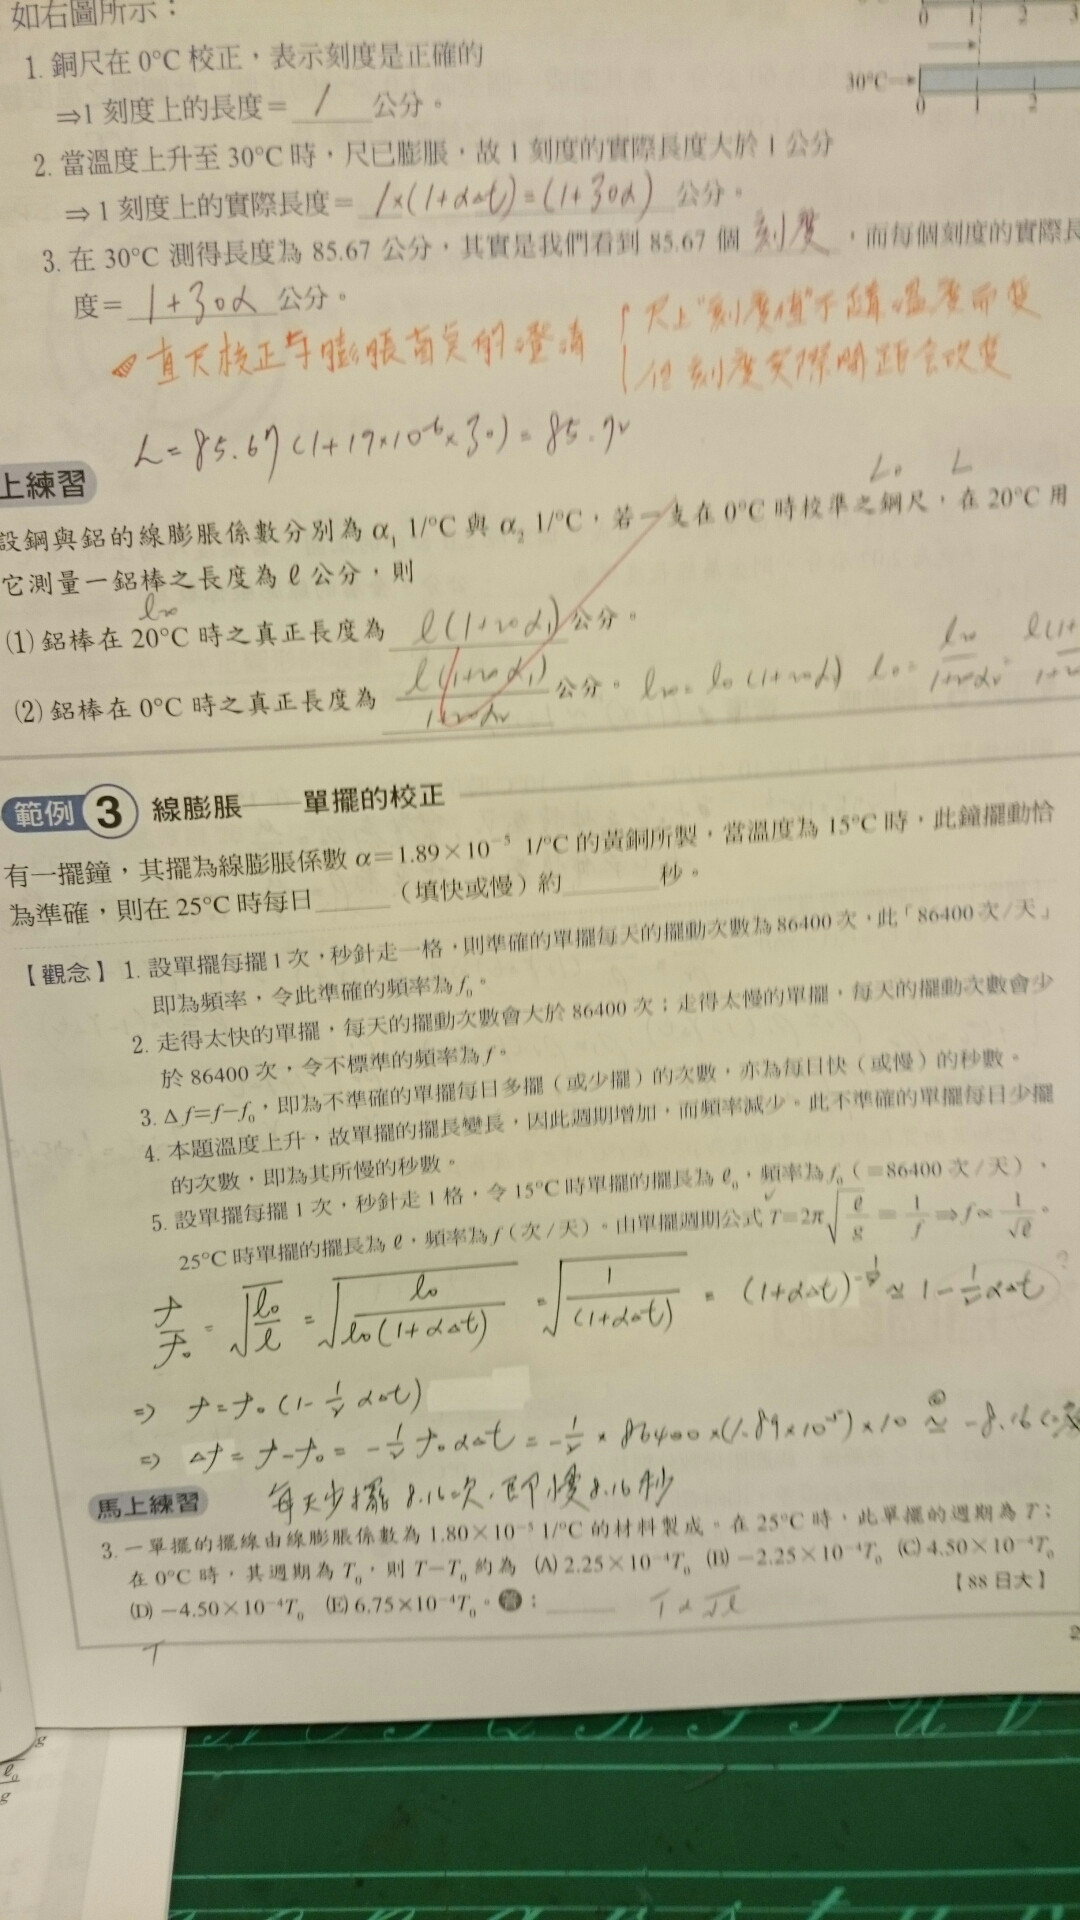 如右圖所示：
0 1 2 3
1. 銅尺在 0°C 校正，表示刻度是正確的
30°C
0 1 2
⇒1 刻度上的長度＝ 1 公分。
2. 當溫度上升至 30°C 時，尺已膨脹，故 1 刻度的實際長度大於 1 公分
⇒1 刻度上的實際長度＝ 1×(1+αΔt)=(1+30α) 公分。
3. 在 30°C 測得長度為 85.67 公分，其實是我們看到 85.67 個 刻度，而每個刻度的實際長
度＝ 1+30α 公分。
直尺校正與膨脹 的
尺上"刻度值"不 溫度而變
但刻度實際間距會改變
L=85.67(1+17×10⁻⁶×30)=85.72
上練習
L₀ L
設鋼與鋁的線膨脹係數分別為 α₁ 1/°C 與 α₂ 1/°C，若一支在 0°C 時校準之鋼尺，在 20°C 用
它測量一鋁棒之長度為 ℓ 公分，則
l₂₀
(1) 鋁棒在 20°C 時之真正長度為 l(1+20α₁) 公分。
(2) 鋁棒在 0°C 時之真正長度為 l(1+20α₁)/1+20α₂ 公分。 l₂₀=l₀(1+20α₂) l₀=l₂₀/1+20α₂=
範例 3 線膨脹——單擺的校正
有一擺鐘，其擺為線膨脹係數 α＝1.89×10⁻⁵ 1/°C 的黃銅所製，當溫度為 15°C 時，此鐘擺動恰
為準確，則在 25°C 時每日＿＿＿（填快或慢）約＿＿＿秒。
【觀念】1. 設單擺每擺 1 次，秒針走一格，則準確的單擺每天的擺動次數為 86400 次，此「86400 次/天」
即為頻率，令此準確的頻率為 f₀。
2. 走得太快的單擺，每天的擺動次數會大於 86400 次；走得太慢的單擺，每天的擺動次數會少
於 86400 次，令不標準的頻率為 f。
3. Δf=f−f₀，即為不準確的單擺每日多擺（或少擺）的次數，亦為每日快（或慢）的秒數。
4. 本題溫度上升，故單擺的擺長變長，因此週期增加，而頻率減少。此不準確的單擺每日少擺
的次數，即為其所慢的秒數。
5. 設單擺每擺 1 次，秒針走 1 格，令 15°C 時單擺的擺長為 ℓ₀，頻率為 f₀（＝86400 次/天），
25°C 時單擺的擺長為 ℓ，頻率為 f（次/天）。由單擺週期公式 T=2π√(ℓ/g)=1/f⇒f∝1/√ℓ。
f/f₀=√(l₀/l)=√(l₀/l₀(1+αΔt))=√(1/(1+αΔt))=(1+αΔt)^(-1/2)≈1-1/2αΔt
⇒ f=f₀(1-1/2αΔt)
⇒ Δf=f-f₀=-1/2f₀αΔt=-1/2×86400×(1.89×10⁻⁵)×10≈-8.16
每天少擺 8.16次，即慢8.16秒
馬上練習
3. 一單擺的擺線由線膨脹係數為 1.80×10⁻⁵ 1/°C 的材料製成。在 25°C 時，此單擺的週期為 T；
在 0°C 時，其週期為 T₀，則 T−T₀ 約為 (A) 2.25×10⁻⁴T₀ (B) −2.25×10⁻⁴T₀ (C) 4.50×10⁻⁴T₀
(D) −4.50×10⁻⁴T₀ (E) 6.75×10⁻⁴T₀。答：＿＿＿ T∝√l
【88 日大】
T